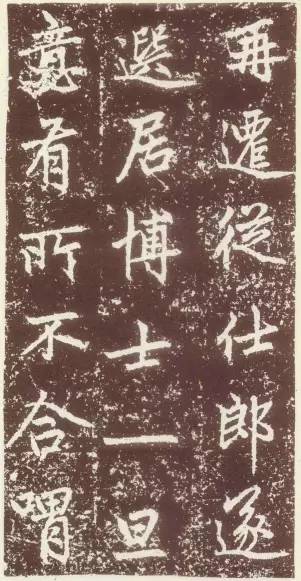 再遷從仕郎遂
選居博士一旦
意有所不合喟